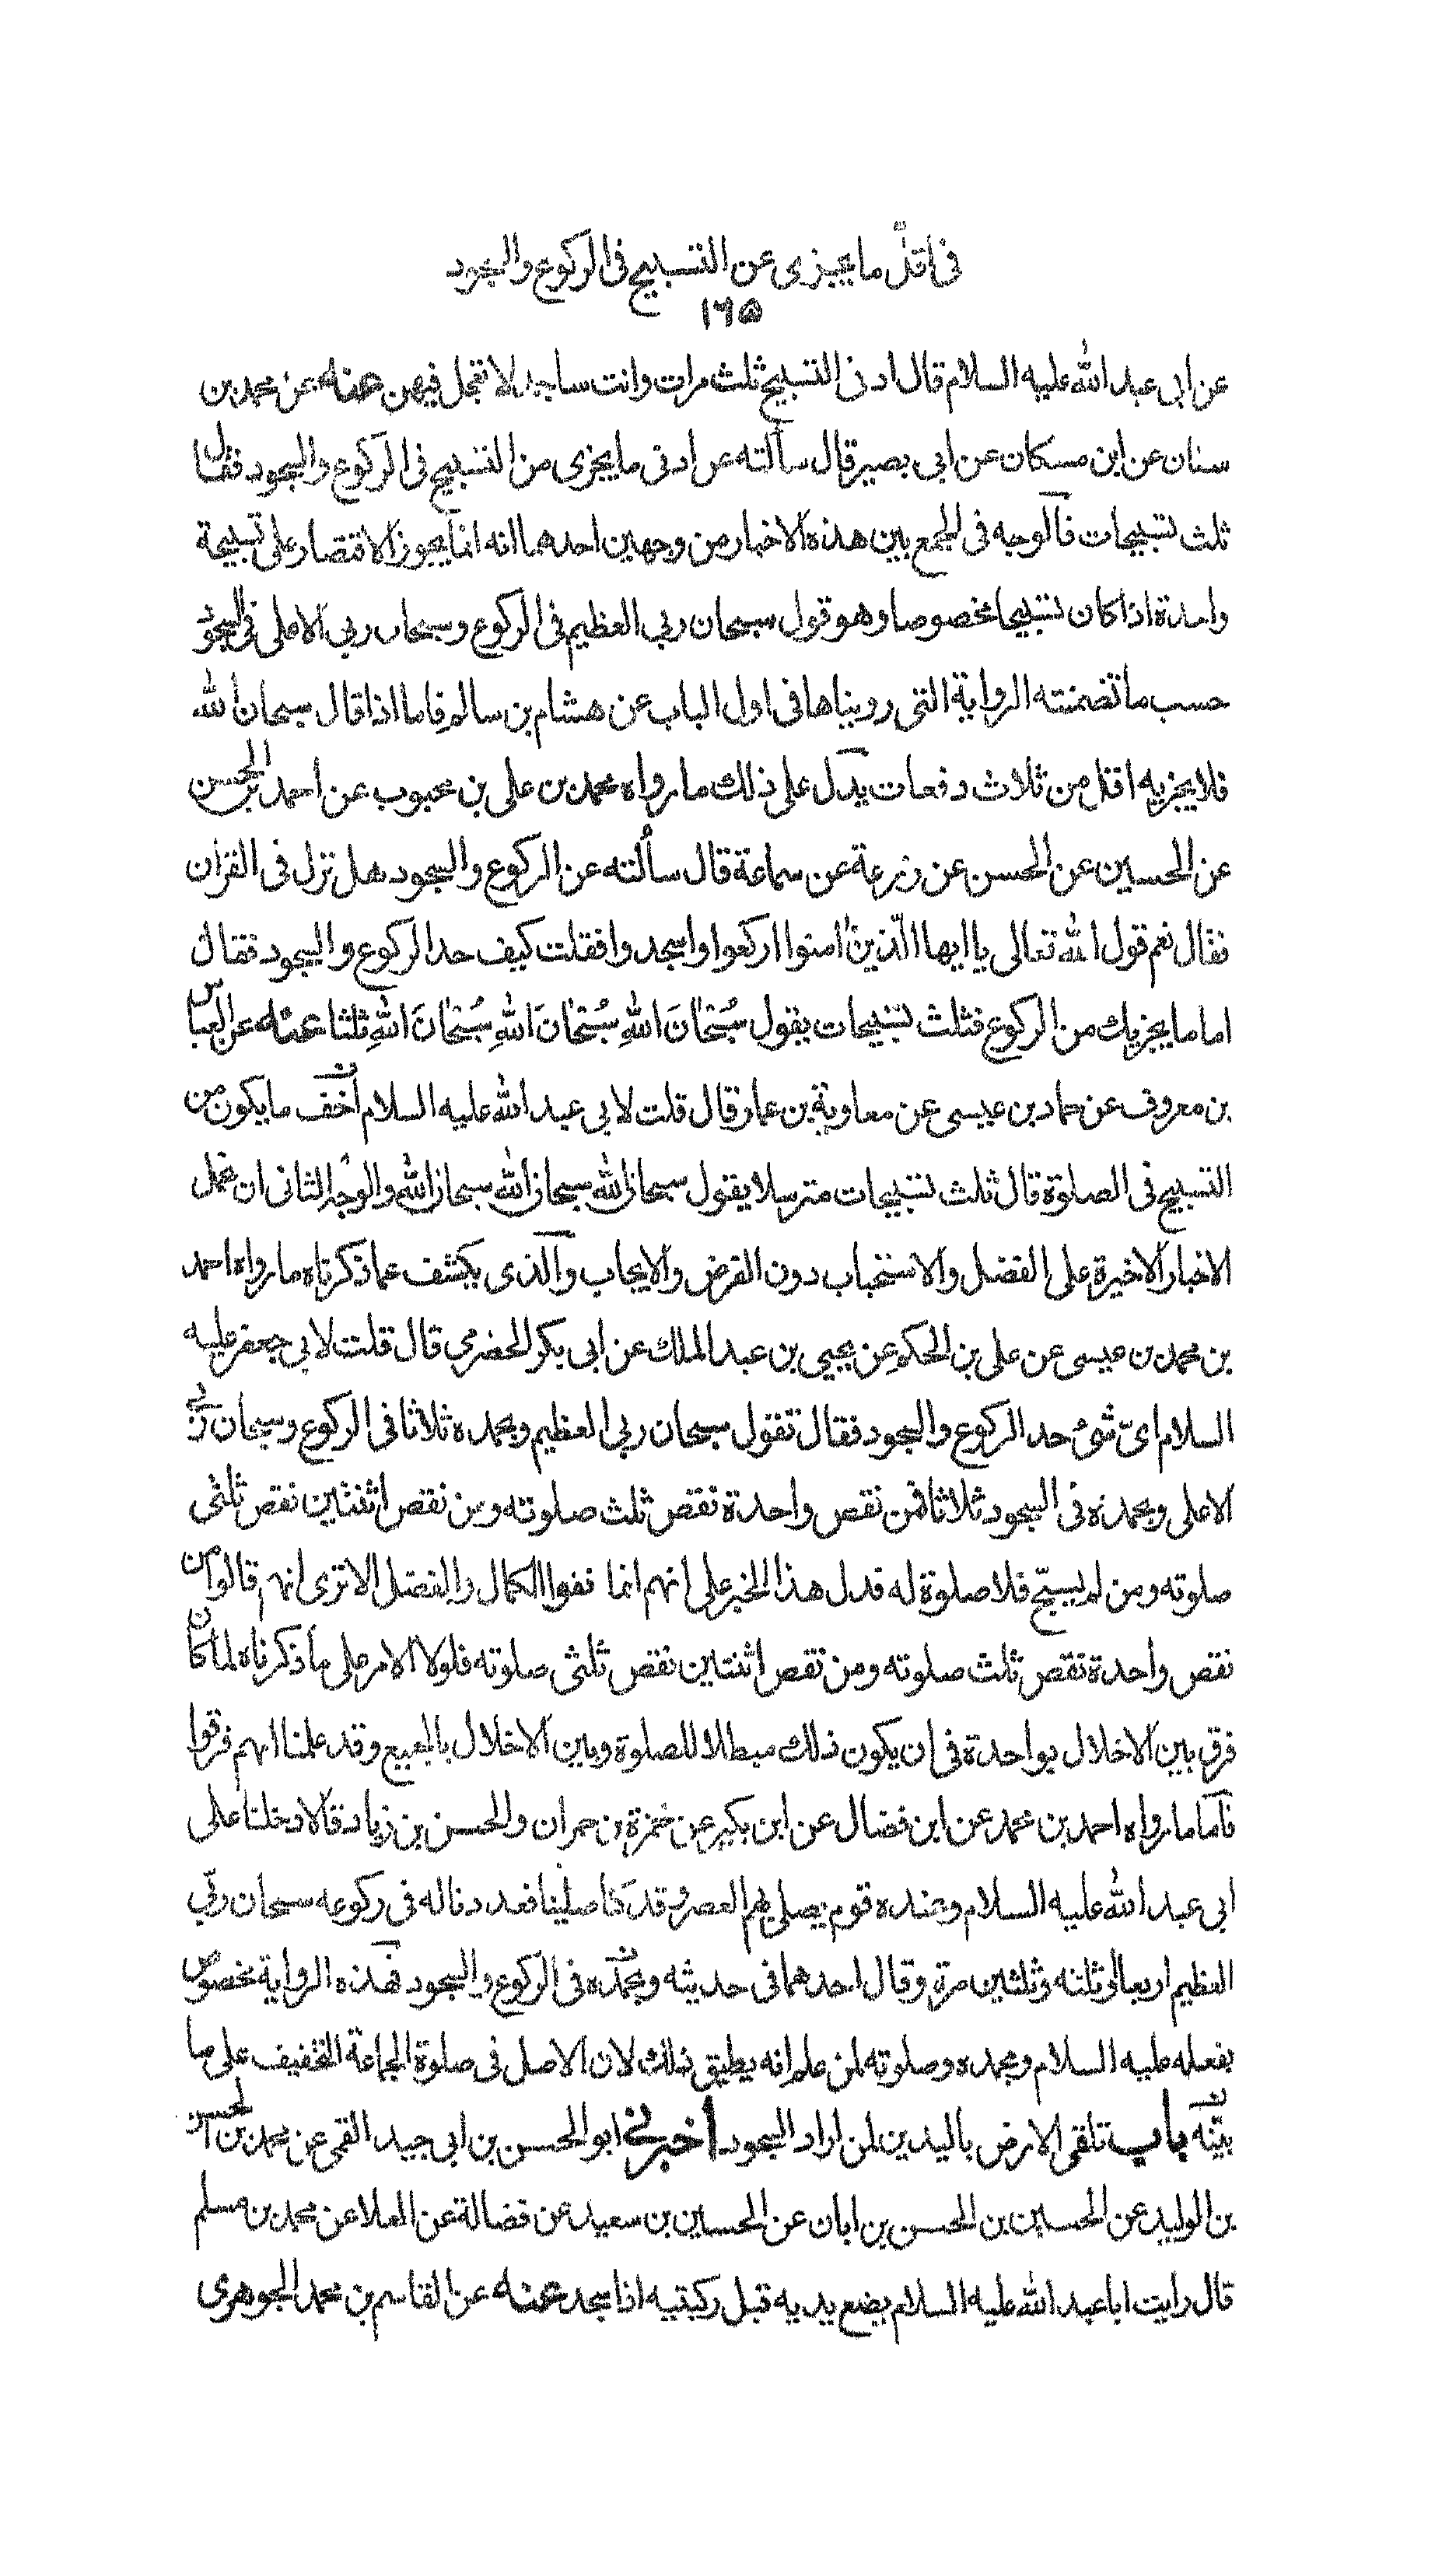 في اقلّ ما يجزى عن التسبيح فى الركوع والسجود
١٦٥
عن ابى عبد الله عليه السلام قال ادنى التسبيح ثلث مرات وانت ساجد لا تعجل فيهن عنه عن محمد بن
سنان عن ابن مسكان عن ابى بصير قال سألته عن ادنى ما يجزى من التسبيح فى الركوع والسجود فقال
ثلث تسبيحات فالوجه فى الجمع بين هذه الاخبار من وجهين احدهما انه انما يجوز الاقتصار على تسبيحة
واحدة اذا كان تسبيحا مخصوصا وهو قول سبحان ربى العظيم فى الركوع وسبحان ربى الاعلى فى السجود
حسب ما تضمنته الرواية التى رويناها فى اول الباب عن هشام بن سالم فاما اذا قال سبحان الله
فلا يجزيه اقل من ثلاث دفعات يدل على ذلك ما رواه محمد بن على بن محبوب عن احمد بن الحسن
عن الحسين عن الحسن عن زرعة عن سماعة قال سألته عن الركوع والسجود هل نزل فى القران
فقال نعم قول الله تعالى يا ايها الّذين امنوا اركعوا واسجدوا فقلت كيف حد الركوع والسجود فقال
اما ما يجزيك من الركوع فثلث تسبيحات يقول سُبْحانَ اللهِ سُبْحانَ اللهِ سُبْحانَ اللهِ ثلثا عنه عن العباس
بن معروف عن حماد بن عيسى عن معاوية بن عمار قال قلت لابى عبد الله عليه السلام اخف ما يكون من
التسبيح فى الصلوة قال ثلث تسبيحات مترسلا يقول سبحان الله سبحان الله سبحان الله والوجه الثانى ان نحمل
الاخبار الاخيرة على الفضل والاستحباب دون الفرض والايجاب والذى يكشف عما ذكرناه ما رواه احمد
بن محمد بن عيسى عن على بن الحكم عن يحيى بن عبد الملك عن ابى بكر الحضرمى قال قلت لابى جعفر عليه
السلام اىّ شئ حد الركوع والسجود فقال تقول سبحان ربى العظيم وبحمده ثلاثا فى الركوع وسبحان ربى
الاعلى وبحمده فى السجود ثلاثا فمن نقص واحدة نقص ثلث صلوته ومن نقص اثنتين نقص ثلثى
صلوته ومن لم يسبّح فلا صلوة له فدل هذا الخبر على انهم انما نفوا الكمال والفضل الا ترى انهم قالوا من
نقص واحدة نقص ثلث صلوته ومن نقص اثنتين نقص ثلثى صلوته فلولا الامر على ما ذكرناه لما كان
فرق بين الاخلال بواحدة فى ان يكون ذلك مبطلا للصلوة وبين الاخلال بالجميع وقد علمنا انهم فرقوا
فاما ما رواه احمد بن محمد عن ابن فضال عن ابن بكير عن حمزة بن حمران والحسن بن زياد قالا دخلنا على
ابى عبد الله عليه السلام وعنده قوم يصلى بهم العصر وقد كنا صلينا فعددنا له فى ركوعه سبحان ربّي
العظيم اربعا او ثلثه وثلثين مرة وقال احدهما فى حديثه وبحمده فى الركوع والسجود فهذه الرواية مخصوص
بفعله عليه السلام وبحمده وصلوته لمن علم انه يطيق ذلك لان الاصل فى صلوة الجماعة التخفيف على ما
بينّه باب تلقى الارض باليدين لمن اراد السجود أخبرنى ابو الحسن بن ابى جيد القمى عن محمد بن الحسن
بن الوليد عن الحسين بن الحسن بن ابان عن الحسين بن سعيد عن فضالة عن العلا عن محمد بن مسلم
قال رايت ابا عبد الله عليه السلام يضع يديه قبل ركبتيه اذا سجد عنه عن القاسم بن محمد الجوهرى